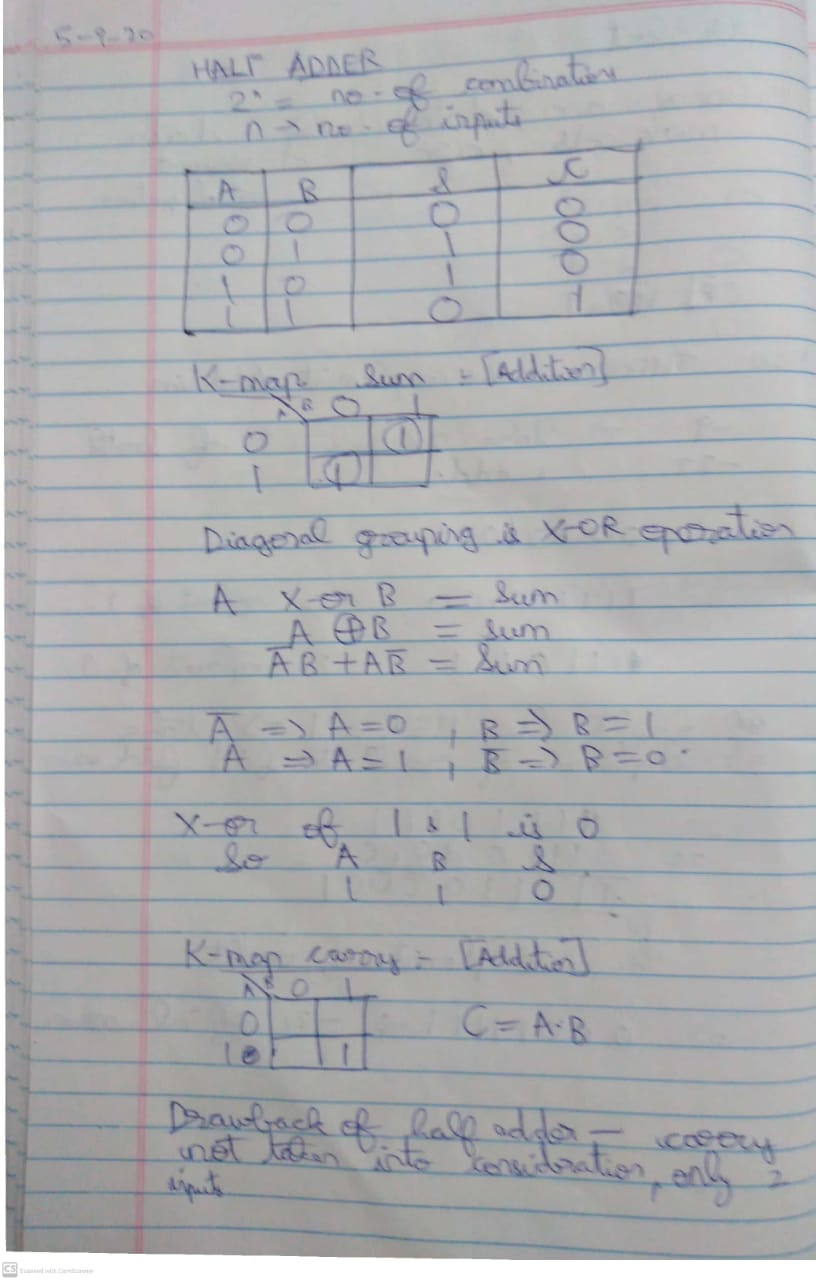 5-9-20
HALF ADDER
2ⁿ = no. of combination
n → no. of inputs
A B S C
0 0 0 0
0 1 1 0
1 0 1 0
1 1 0 1
K-map Sum :- [Addition]
A B 0 1
0 1
1 1
Diagonal grouping is X-OR operation
A X-or B = Sum
A ⊕ B = Sum
A̅B + AB̅ = Sum
A̅ => A=0 , B => B=1
A => A=1 , B̅ => B=0.
X-or of 1 & 1 is 0
So A B S
1 1 0
K-map carry :- [Addition]
A B 0 1
0 C = A·B
1 1
Drawback of half adder — carry
not taken into consideration, only 2
inputs
CS Scanned with CamScanner